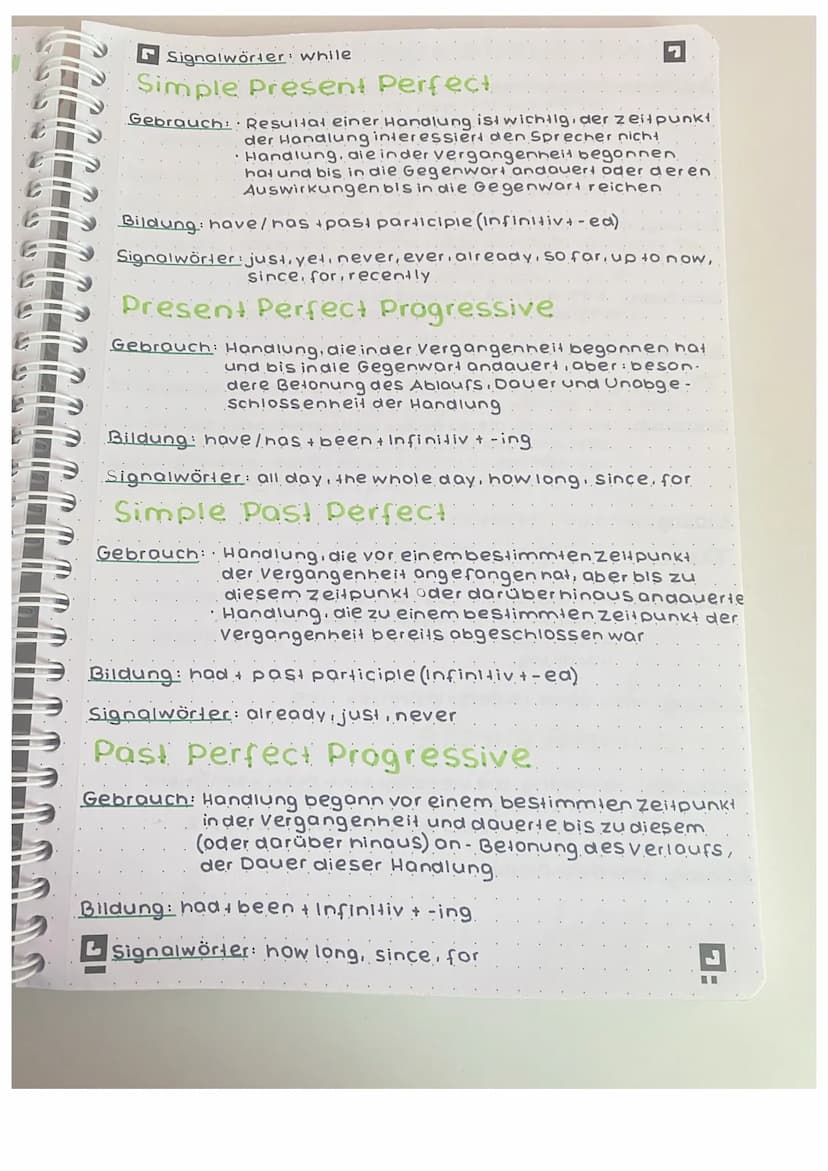 Signalwörter: while
Simple Present Perfect
Gebrauch: · Resultat einer Handlung ist wichtig, der Zeitpunkt
der Handlung interessiert den Sprecher nicht
· Handlung, die in der Vergangenheit begonnen
hat und bis in die Gegenwart andauert oder deren
Auswirkungen bis in die Gegenwart reichen
Bildung: have/has + past participle (Infinitiv + -ed)
Signalwörter: just, yet, never, ever, already, so far, up to now,
since, for, recently
Present Perfect Progressive
Gebrauch: Handlung, die in der Vergangenheit begonnen hat
und bis in die Gegenwart andauert, aber: beson-
dere Betonung des Ablaufs, Dauer und Unabge-
schlossenheit der Handlung
Bildung: have/has + been + Infinitiv + -ing
Signalwörter: all day, the whole day, how long, since, for
Simple Past Perfect
Gebrauch: · Handlung, die vor einem bestimmten Zeitpunkt
der Vergangenheit angefangen hat, aber bis zu
diesem Zeitpunkt oder darüber hinaus andauerte
· Handlung, die zu einem bestimmten Zeitpunkt der
Vergangenheit bereits abgeschlossen war
Bildung: had + past participle (Infinitiv + -ed)
Signalwörter: already, just, never
Past Perfect Progressive
Gebrauch: Handlung begann vor einem bestimmten Zeitpunkt
in der Vergangenheit und dauerte bis zu diesem
(oder darüber hinaus) an - Betonung des Verlaufs,
der Dauer dieser Handlung
Bildung: had + been + Infinitiv + -ing
Signalwörter: how long, since, for